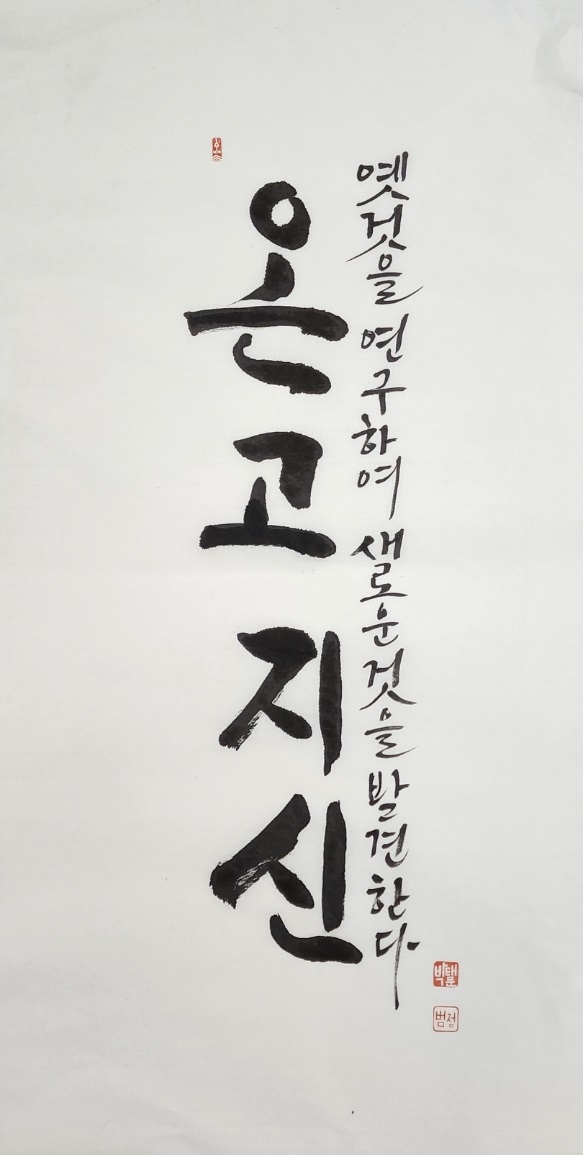 온고지신
옛것을 연구하여 새로운것을 발견한다
범정